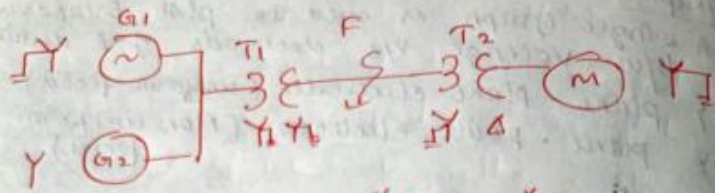 G1
T1 F T2
Y ~ M Y
Y G2 Y Y Y Δ